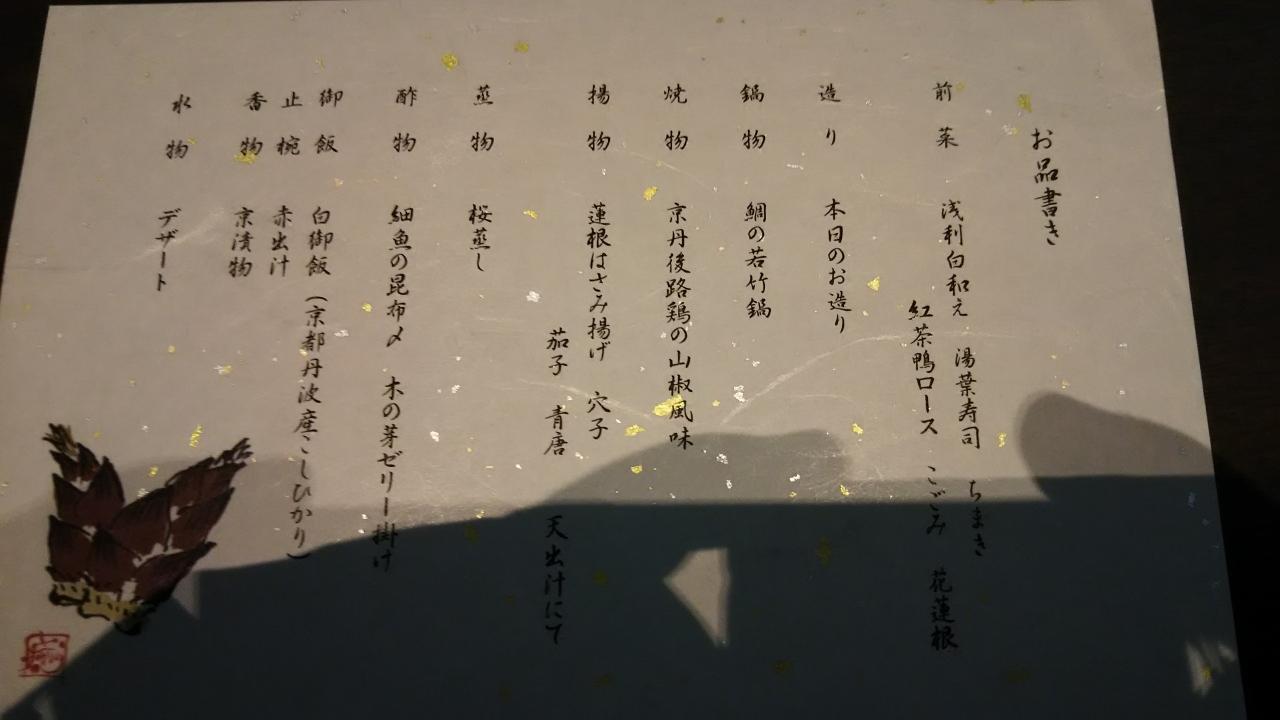 お品書き
前菜 浅利白和え 湯葉寿司 ちまき
紅茶鴨ロース こごみ 花蓮根
造り 本日のお造り
鍋物 鯛の若竹鍋
焼物 京丹後路鶏の山椒風味
揚物 蓮根はさみ揚げ 穴子
茄子 青唐 天出汁にて
蒸物 桜蒸し
酢物 細魚の昆布〆 木の芽ゼリー掛け
御飯 白御飯(京都丹波産こしひかり)
止椀 赤出汁
香物 京漬物
水物 デザート